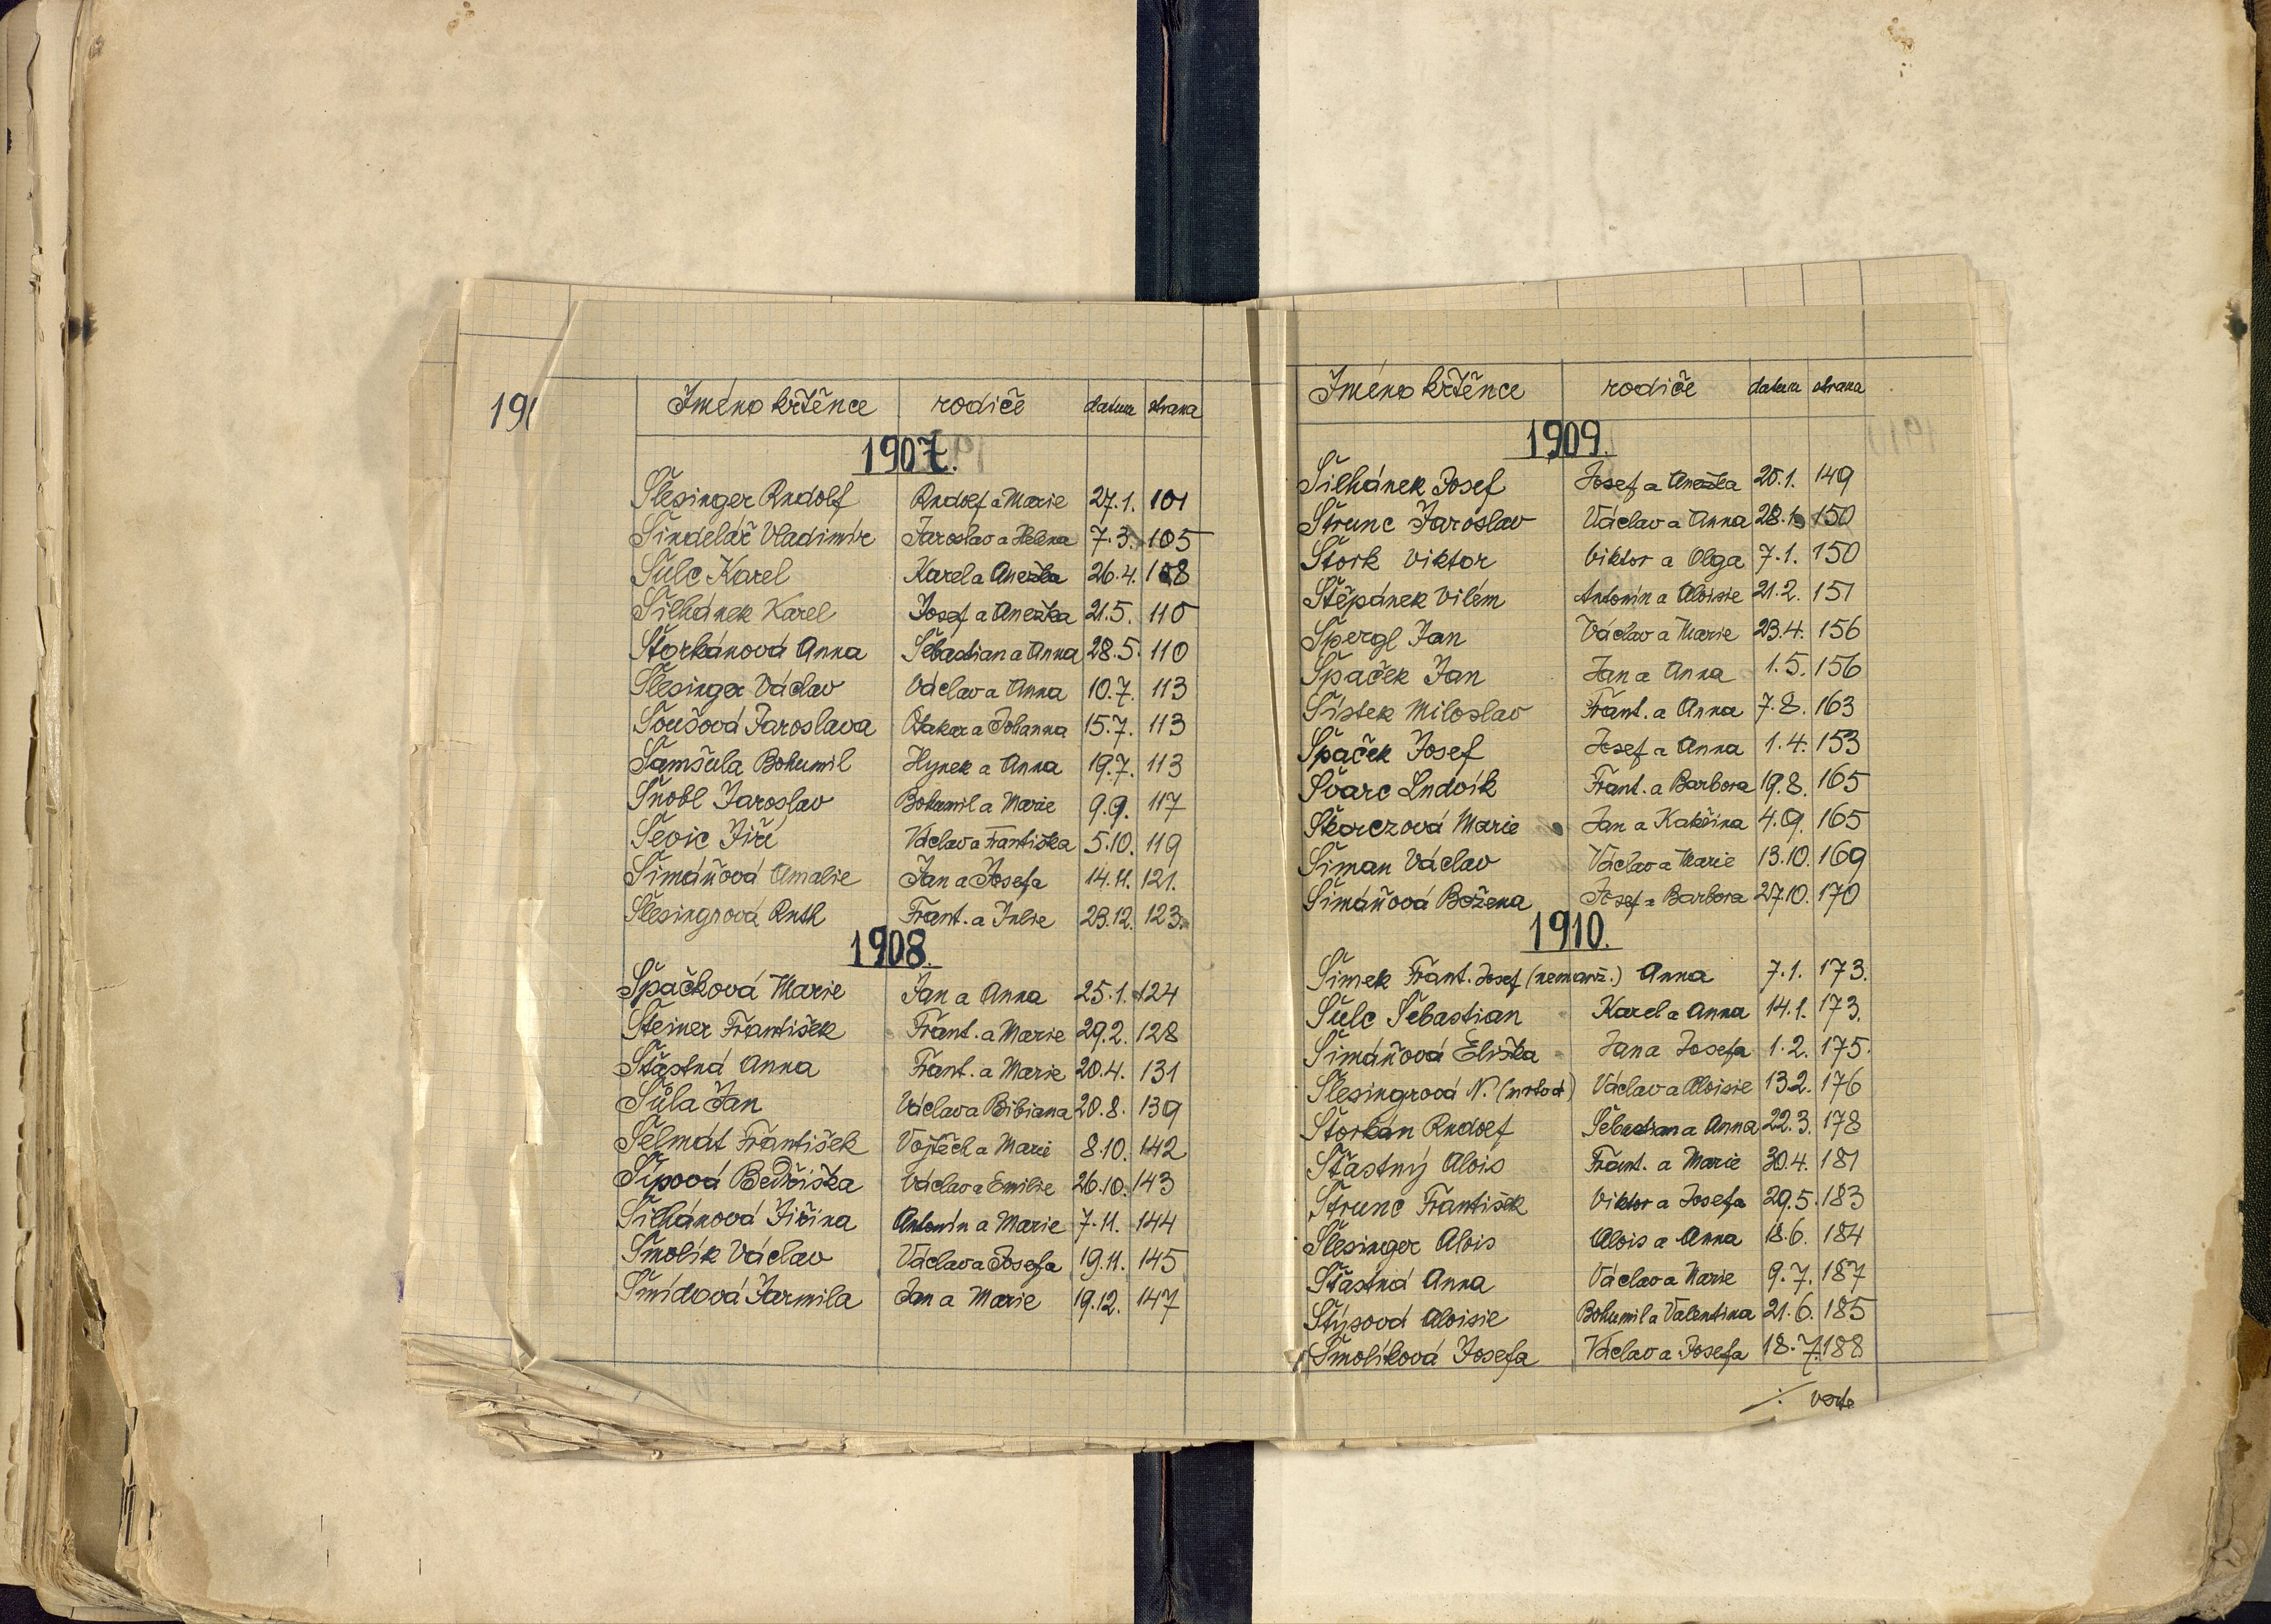 191
Jméno křtěnce rodiče datum strana
1907.
Šlesinger Rudolf Rudolf a Marie 27.1. 101
Šindelář Vladimír Jaroslav a Helena 7.3. 105
Šulc Karel Karel a Anežka 26.4. 108
Šilhánek Karel Josef a Anežka 21.5. 110
Štorkánová Anna Šebastian a Anna 28.5. 110
Šlesinger Václav Václav a Anna 10.7. 113
Šoušová Jaroslava Otakar a Johanna 15.7. 113
Šamšula Bohumil Hynek a Anna 19.7. 113
Šnobl Jaroslav Bohumil a Marie 9.9. 117
Ševic Jiří Václav a Františka 5.10. 119
Šimáňová Amalie Jan a Josefa 14.11. 121.
Šlesingrová Ruth Frant. a Julie 23.12. 123.
1908.
Špačková Marie Jan a Anna 25.1. 124
Šteiner František Frant. a Marie 29.2. 128
Šťastná Anna Frant. a Marie 20.4. 131
Šůla Jan Václav a Bibiana 20.8. 139
Šelmát František Vojtěch a Marie 8.10. 142
Šípová Bedřiška Václav a Emilie 26.10. 143
Šilhánová Jiřina Antonín a Marie 7.11. 144
Šmolík Václav Václav a Josefa 19.11. 145
Šmídová Jarmila Jan a Marie 19.12. 147
Jméno křtěnce rodiče datum strana
1909.
Šilhánek Josef Josef a Anežka 20.1. 149
Štrunc Jaroslav Václav a Anna 28.1. 150
Štork Viktor Viktor a Olga 7.1. 150
Štěpánek Vilém Antonín a Aloisie 21.2. 151
Špergl Jan Václav a Marie 23.4. 156
Špaček Jan Jan a Anna 1.5. 156
Šístek Miloslav Frant. a Anna 7.8. 163
Špaček Josef Josef a Anna 1.4. 153
Švarc Ludvík Frant. a Barbora 19.8. 165
Škorczová Marie Jan a Kateřina 4.9. 165
Šiman Václav Václav a Marie 13.10. 169
Šimáňová Božena Josef a Barbora 27.10. 170
1910.
Šimek Frant. Josef (nemanž.) Anna 7.1. 173.
Šulc Šebastian Karel a Anna 14.1. 173.
Šimáňová Eliška Jan a Josefa 1.2. 175.
Šlesingrová N. (mrtvá) Václav a Aloisie 13.2. 176
Štorkán Rudolf Šebastian a Anna 22.3. 178
Šťastný Alois Frant. a Marie 30.4. 181
Štrunc František Viktor a Josefa 29.5. 183
Šlesinger Alois Alois a Anna 18.6. 184
Šťastná Anna Václav a Marie 9.7. 187
Štýsová Aloisie Bohumil a Valentina 21.6. 185
Šmolíková Josefa Václav a Josefa 18.7. 188
./. verte